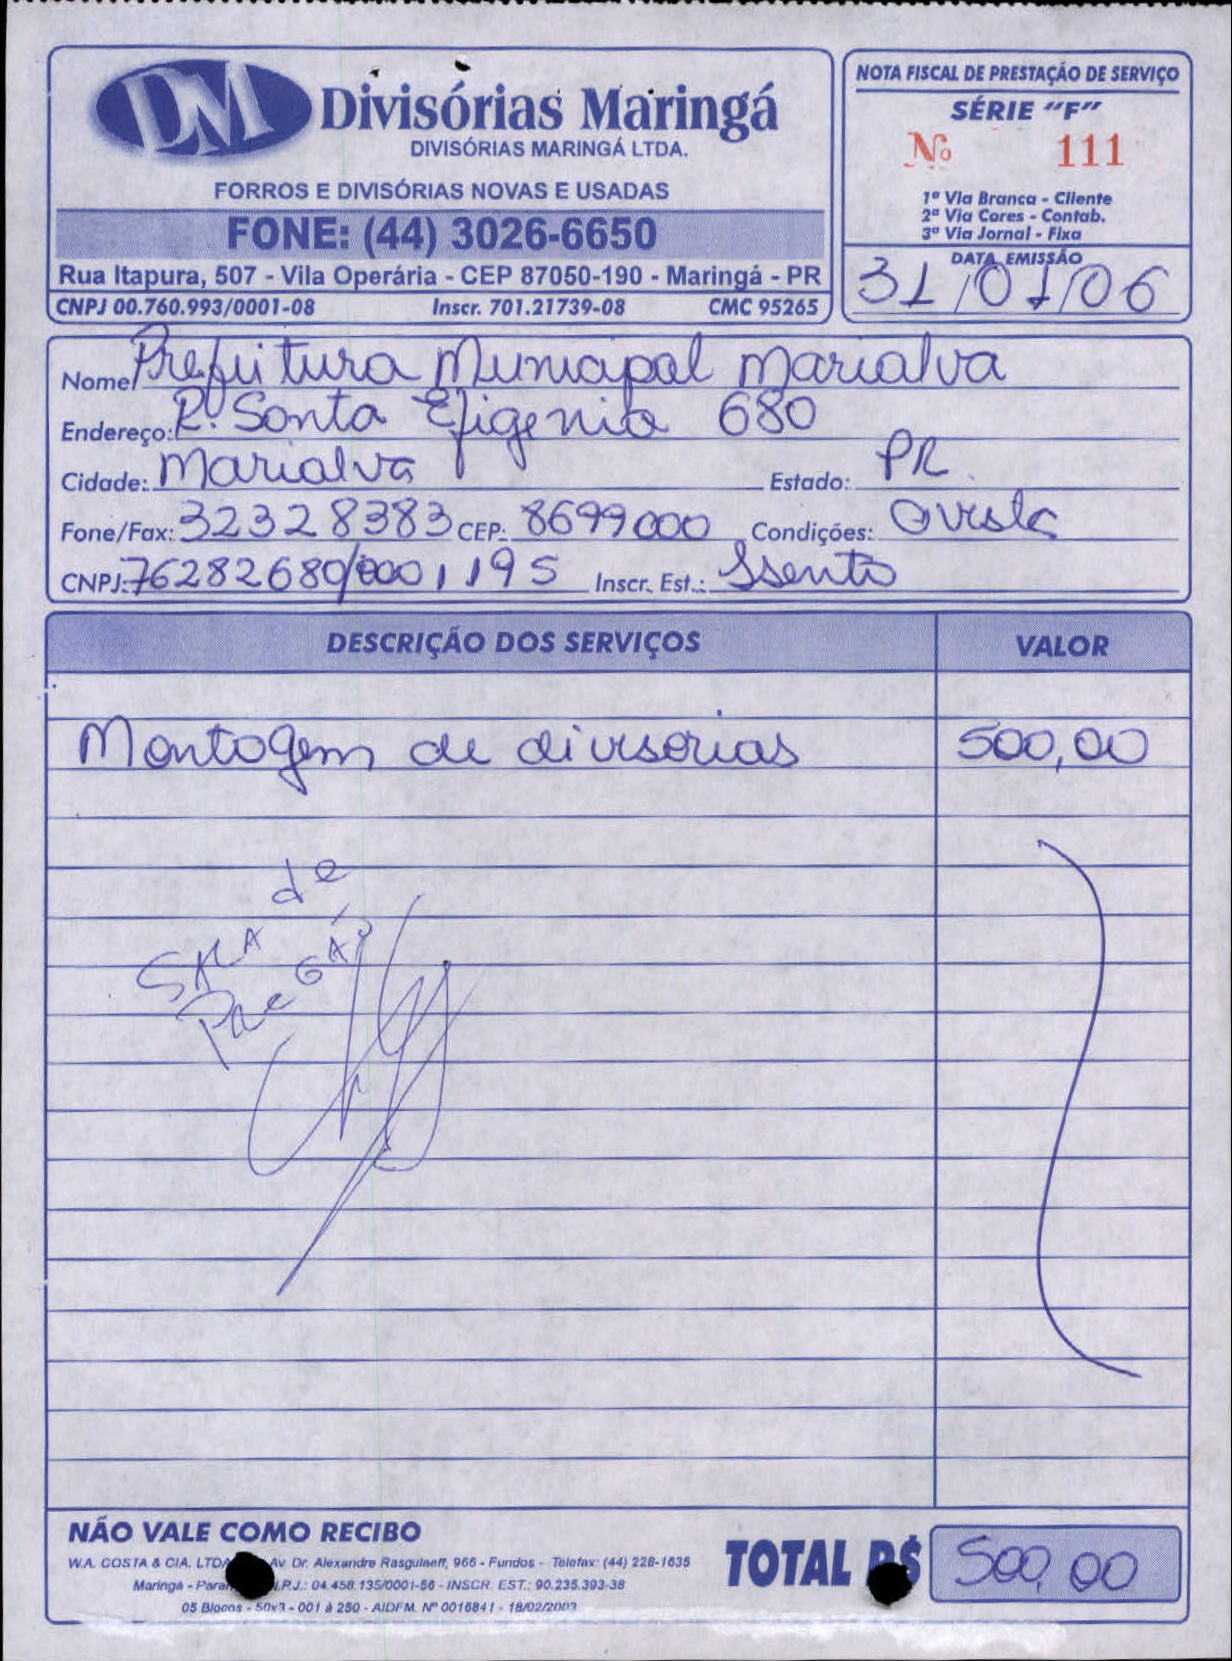 DM Divisórias Maringá
DIVISÓRIAS MARINGÁ LTDA.
FORROS E DIVISÓRIAS NOVAS E USADAS
FONE: (44) 3026-6650
Rua Itapura, 507 - Vila Operária - CEP 87050-190 - Maringá - PR
CNPJ 00.760.993/0001-08 Inscr. 701.21739-08 CMC 95265
NOTA FISCAL DE PRESTAÇÃO DE SERVIÇO
SÉRIE "F"
Nº 111
1ª Via Branca - Cliente
2ª Via Cores - Contab.
3ª Via Jornal - Fixa
DATA EMISSÃO
31/01/06
Nome Prefeitura Municipal Marialva
Endereço: R. Santa Efigenia 680
Cidade: Marialva Estado: PR
Fone/Fax: 32328383 CEP: 8699000 Condições: avista
CNPJ: 76282680/0001195 Inscr. Est.: Isento
DESCRIÇÃO DOS SERVIÇOS VALOR
Montagem de divisorias 500,00
de
NÃO VALE COMO RECIBO
W.A. COSTA & CIA. LTDA Av. Dr. Alexandre Rasgulaeff, 966 - Fundos - Telefax: (44) 228-1635
Maringá - P.J.: 04.458.135/0001-56 - INSCR. EST.: 90.235.393-38
05 Blocos - 50x3 - 001 à 250 - AIDFM. Nº 0016841 - 18/02/2003
TOTAL R$ 500,00